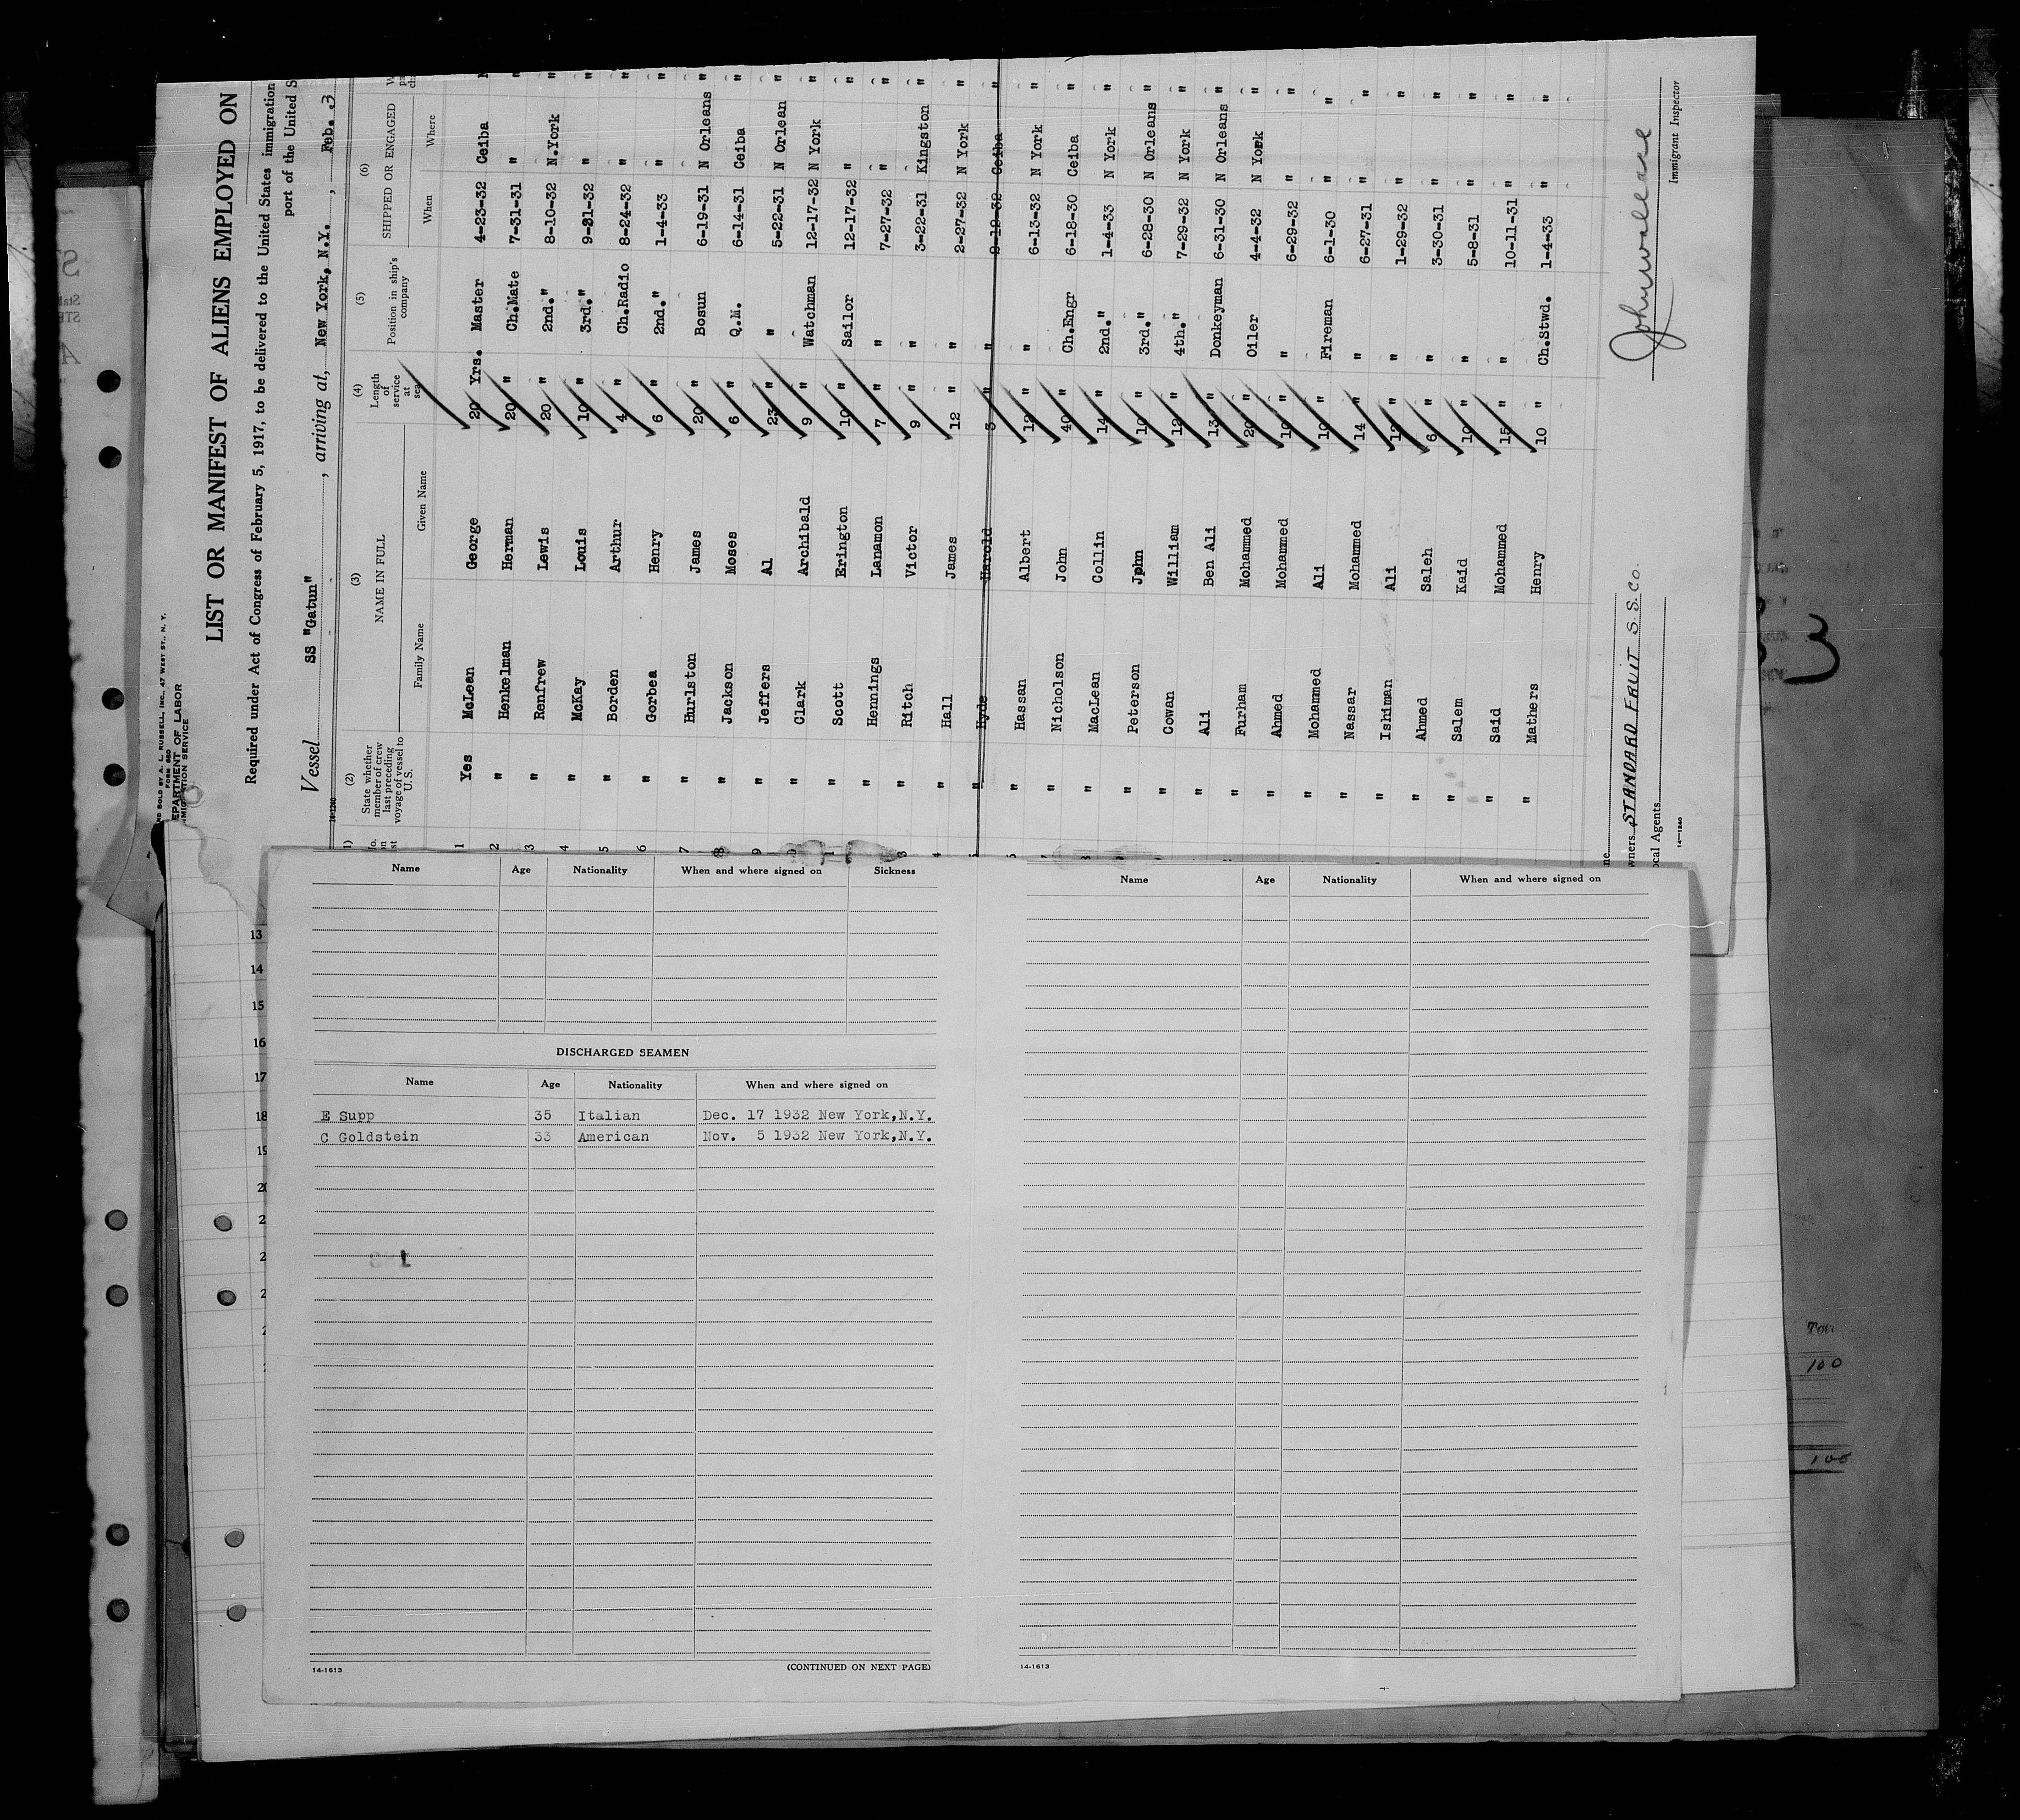 AND SOLD BY A. L. RUSSELL, INC., 47 WEST ST., N. Y.
FORM 660
DEPARTMENT OF LABOR
IMMIGRATION SERVICE
LIST OR MANIFEST OF ALIENS EMPLOYED ON
Required under Act of Congress of February 5, 1917, to be delivered to the United States immigration
port of the United S
Vessel SS "Gatun", arriving at, New York, N.Y., Feb. 3
14-1240
(2) (3) (4) (5) (6)
State whether member of crew last preceding voyage of vessel to U. S. NAME IN FULL Length of service at sea Position in ship's company SHIPPED OR ENGAGED
Family Name Given Name When Where
1 Yes McLean George 20 Yrs. Master 4-23-32 Ceiba
2 " Henkelman Herman 20 " Ch.Mate 7-31-31 " "
3 " Renfrew Lewis 20 " 2nd." 8-10-32 N.York "
4 " McKay Louis 10 " 3rd." 9-21-32 " "
5 " Borden Arthur 4 " Ch.Radio 8-24-32 " "
6 " Gorbea Henry 6 " 2nd." 1-4-33 " "
7 " Hurlston James 20 " Bosun 6-19-31 N Orleans "
8 " Jackson Moses 6 " Q.M. 6-14-31 Ceiba "
9 " Jeffers Al 23 " " 5-22-31 N Orlean "
" Clark Archibald 9 " Watchman 12-17-32 N York "
1 " Scott Erington 10 " Sailor 12-17-32 " "
" Hennings Lanamon 7 " " 7-27-32 " "
3 " Ritch Victor 9 " " 3-22-31 Kingston "
4 " Hall James 12 " " 2-27-32 N York "
" Hyde Harold 3 " " 2-12-32 Ceiba "
" Hassan Albert 12 " " 6-13-32 N York "
" Nicholson John 40 " Ch.Engr 6-18-30 Ceiba "
" MacLean Collin 14 " 2nd." 1-4-33 N York "
" Peterson John 10 " 3rd." 6-28-30 N Orleans "
" Cowan William 12 " 4th." 7-29-32 N York "
" Ali Ben Ali 13 " Donkeyman 6-31-30 N Orleans "
" Furham Mohammed 20 " Oiler 4-4-32 N York "
" Ahmed Mohammed 10 " " 6-29-32 " "
" Mohammed Ali 10 " Fireman 6-1-30 " "
" Nassar Mohammed 14 " " 6-27-31 " "
" Ishiman Ali 12 " " 1-29-32 " "
" Ahmed Saleh 6 " " 3-30-31 " "
" Salem Kaid 10 " " 5-8-31 " "
" Said Mohammed 15 " " 10-11-31 " "
" Mathers Henry 10 " Ch.Stwd. 1-4-33 " "
wners STANDARD FRUIT S.S. CO.
ocal Agents
14-1240
John Wallace
Immigrant Inspector
Name Age Nationality When and where signed on Sickness
DISCHARGED SEAMEN
Name Age Nationality When and where signed on
E Supp 35 Italian Dec. 17 1932 New York,N.Y.
C Goldstein 33 American Nov. 5 1932 New York,N.Y.
14-1613 (CONTINUED ON NEXT PAGE)
Name Age Nationality When and where signed on
14-1613
13
14
15
16
17
18
3
100
100